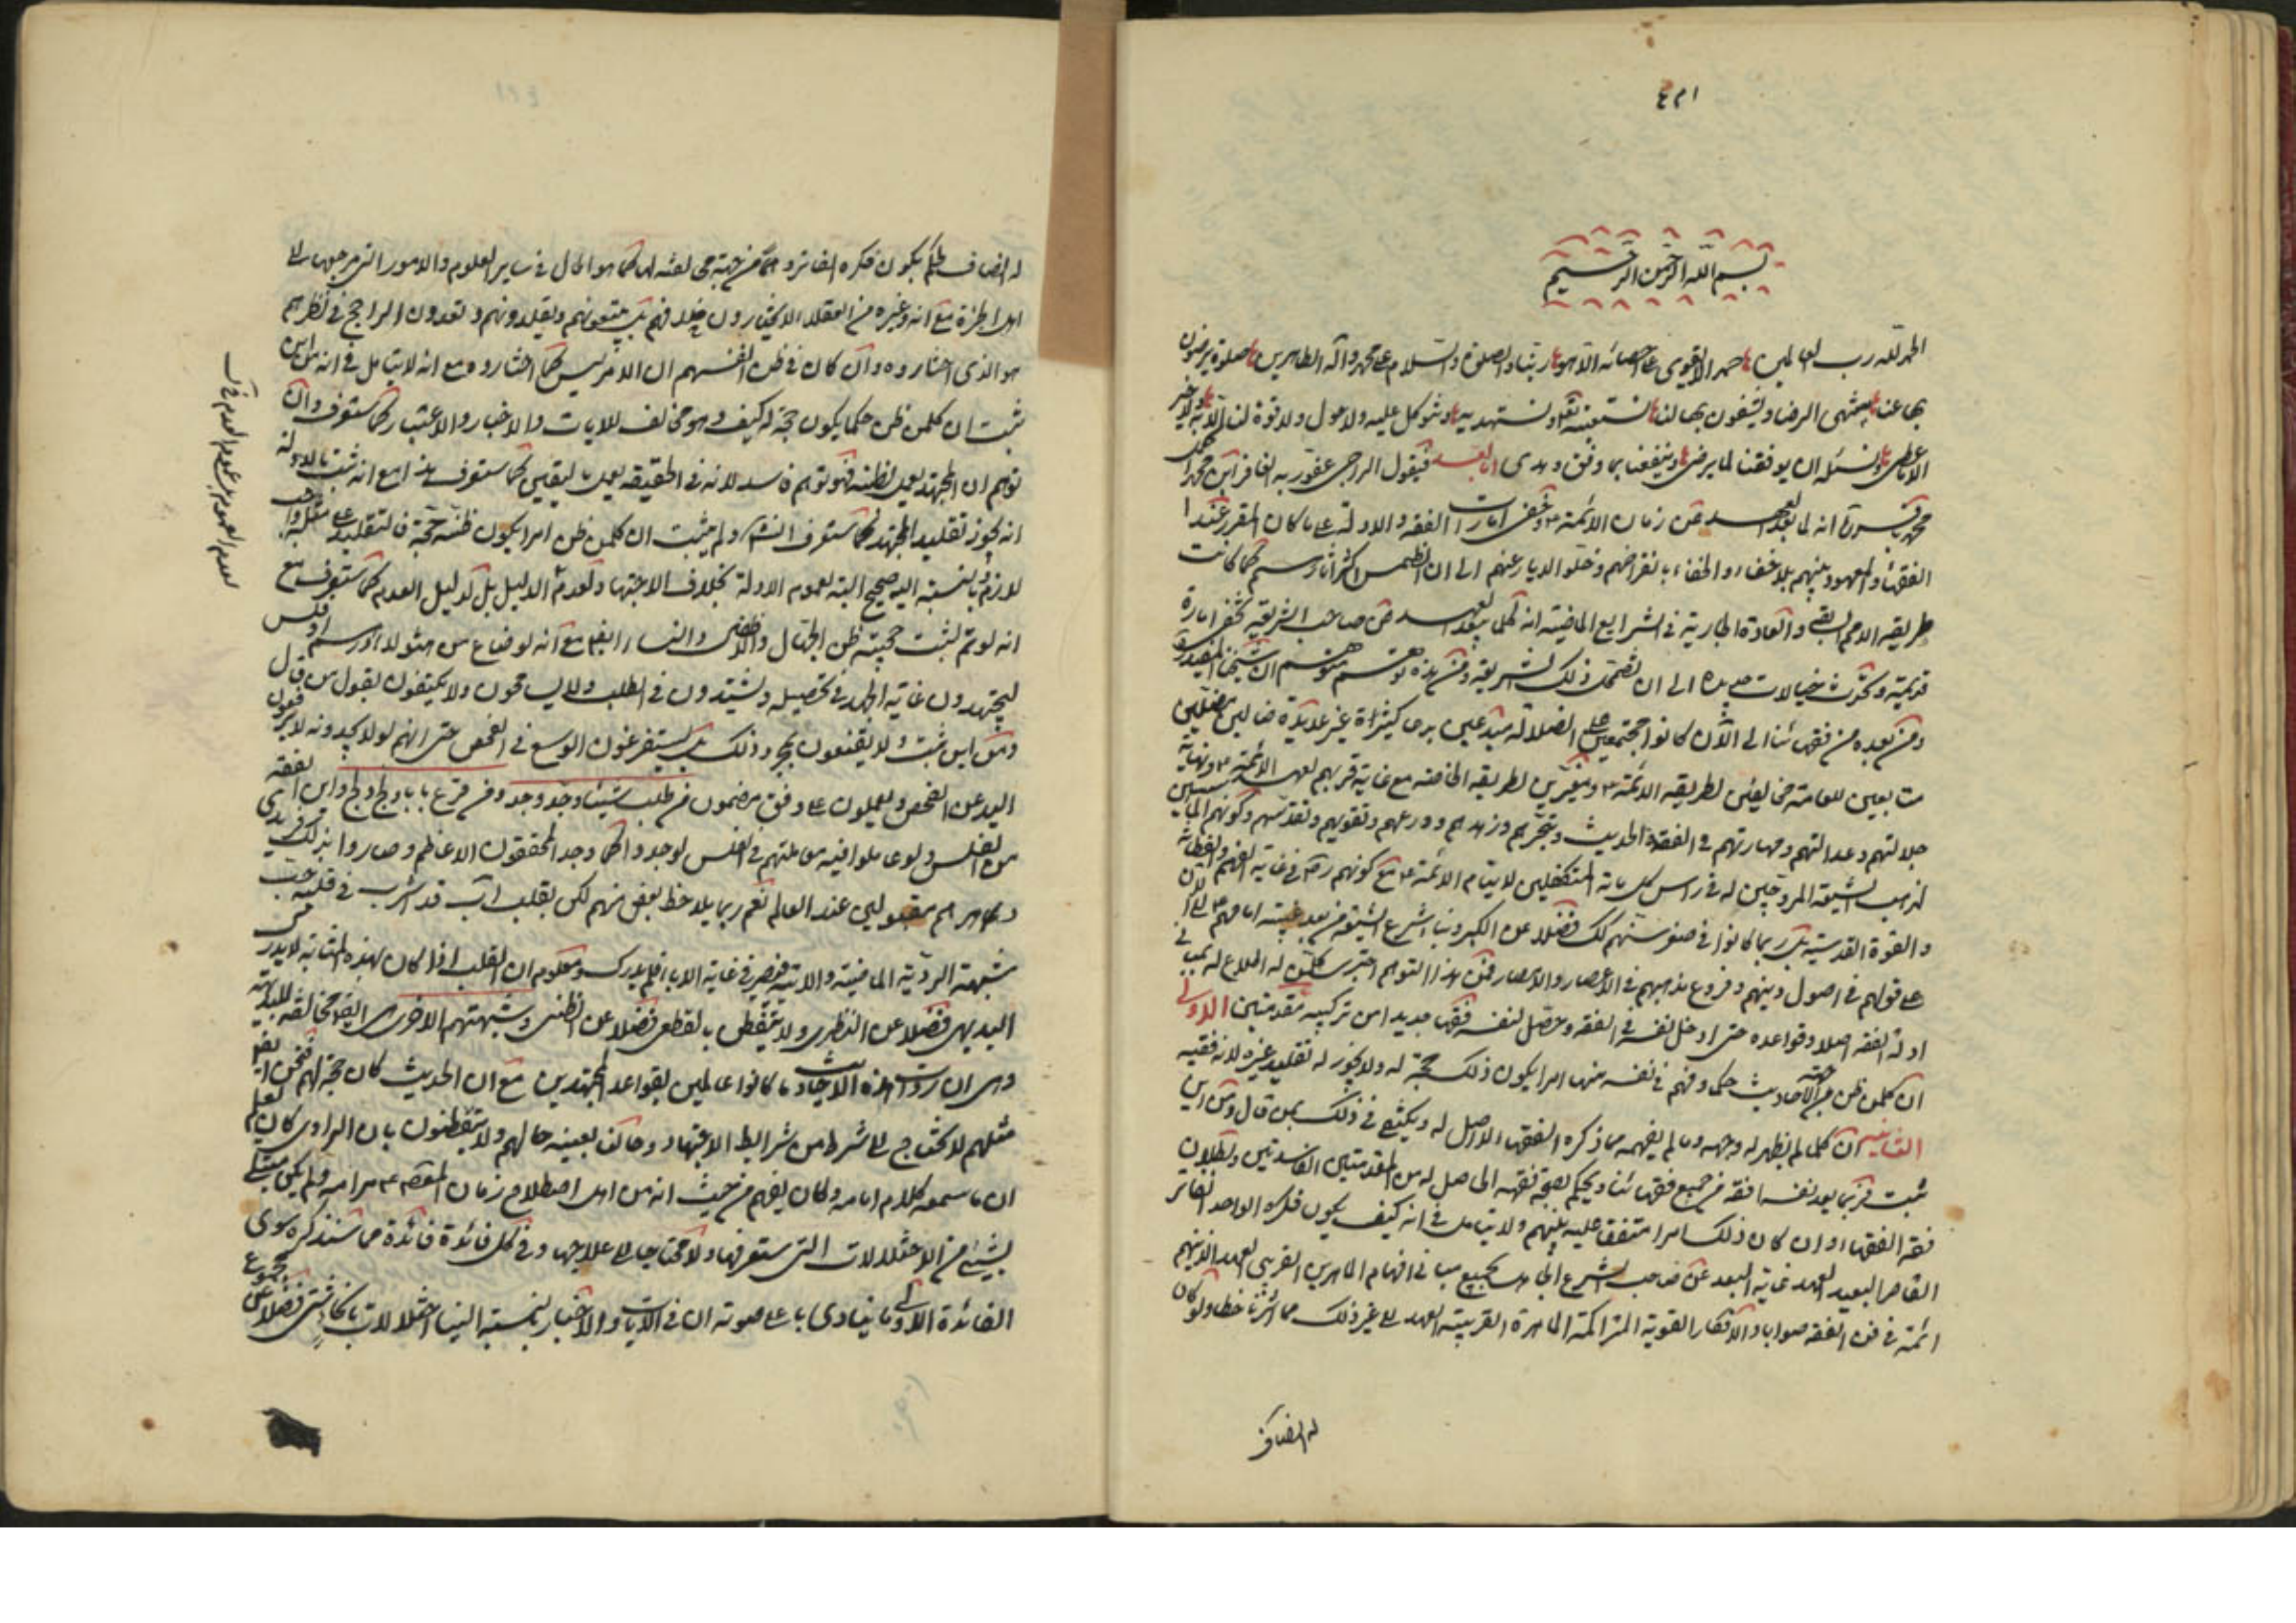 بسم الله الرحمن الرحيم
الحمد لله رب العالمين حمدا لا يقوى على احصائه الا هو ربنا والصلوة والسلام على محمد وآله الطاهرين صلوة يرضون
بها عنا بمنتهى الرضا ويشفعون بها لنا نستعينه تعالى ونستهديه ونتوكل عليه ولا حول ولا قوة لنا الا به ولا خير
الا ما اعطى ونسئله ان يوفقنا لما يرضى وينفعنا بما وفق وهدى اما بعد فيقول الراجى عفو ربه الغافر ابن محمد اكمل
محمد باقر انه لما بعد العهد عن زمان الائمة وخفى امارات الفقه والادلة على ما كان المقرر عند
الفقهاء والمعهود بينهم بلا خفاء بانقراضهم وخلو الديار عنهم الى ان انطمس اكثر آثارهم كما كانت
طريقة الامم السابقة والعادة الجارية فى الشرايع الماضية انه كلما يبعد العهد عن صاحب الشريعة تخفى امارة
قديمة وتحدث خيالات جديدة الى ان تضمحل ذلك الشريعة ومن هذه توهم متوهم ان شيخنا المفيد
ومن بعده من فقهائنا الى الآن كانوا مجتمعين على الضلالة مبتدعين بدعا كثيرة غير عديدة ضالين مضلين
متابعين للعامة مخالفين لطريقة الائمة ومغيرين لطريقة الخاصة مع غاية قربهم لعهد الائمة ونهاية
جلالتهم وعدالتهم ومهارتهم فى الفقه والحديث وتبحرهم وزهدهم وورعهم وتقويهم وتقدسهم وكونهم المؤسسين
لمذهب الشيعة المروجين له فى راس كل مائة المتكفلين لايتام الائمة مع كونهم فى غاية الفهم والفطانة
والقوة القدسية بل ربما كانوا فى صغر سنهم كذلك فضلا عن الكبر وبناء شرع الشيعة من بعد غيبة امامهم الى الآن
على قولهم فى اصول دينهم وفروع مذهبهم فى الاعصار والامصار فمن هذا التوهم اجترى كل من له اطلاع
ادلة الفقه اصلا وقواعده حتى ادخل نفسه فى الفقه وحصل لنفسه فقها جديدا من تركيبه مقدمتين الاولى
ان كل من ظن من الاحاديث حكما وفهم فى نفسه منها امرا يكون ذلك حجة له ولا يجوز له تقليد غيره لانه فقيه
الثانية ان كلما لم يظهر له وجهه وما لم يفهمه مما ذكره الفقهاء لا اصل له ويكتفى فى ذلك بمن قال ومن اين
ثبت فربما يعد نفسه افقه من جميع فقهائنا ويحكم بصحة تفقهه الحاصل له من المقدمتين الفاسدتين وبطلان
فقه الفقهاء وان كان ذلك امرا متفقا عليه بينهم ولا يتامل فى انه كيف يكون فكره الواحد الفاتر
القاصر البعيد العهد غاية البعد عن صاحب الشرع الجاهل بجميع مبانى افهام الماهرين القريبى العهد الذينهم
ائمة فى فن الفقه صوابا والافكار القوية المتراكمة الماهرة القريبة العهد الى غير ذلك مما اشرنا خطا ولو كان
له انصاف
له انصاف فلم يكون فكره الفاتر وهما من جهة مخالفته لها كما هو الحال فى ساير العلوم والامور التى مرجعها الى
اهل الخبرة مع انه وغيره من العقلاء لا يختارون خلافهم بل يتبعونهم ويقلدونهم ويعدون الراجح فى نظرهم
هو الذى اختاروه وان كان فى ظن انفسهم ان الامر ليس كما اختاروه مع انه لا يتامل فى انه من اين
ثبت ان كل من ظن حكما يكون حجة له كيف وهو مخالف للايات والاخبار والاعتبار كما ستعرف وان
توهم ان المجتهد يعمل بظنه فهو توهم فاسد لانه فى الحقيقة يعمل باليقين كما ستعرف هذا مع انه ثبت بالادلة
انه يجوز تقليد المجتهد كما ستعرف ولم يثبت ان كل من ظن امرا يكون ظنه حجة فالتقليد على مثله واجب
لازم بالنسبة اليه صحيح البتة لعموم الادلة بخلاف الاجتهاد لعدم الدليل بل لدليل العدم كما ستعرف مع
انه لو تم لثبت حجية ظن الجهال والاطفال والنساء ايضا مع انه لو ضاع من هؤلاء درهم او فلس
ليجتهدون غاية الجهد فى تحصيله ويشتدون فى الطلب ولا يسامحون ولا يكتفون بقول من قال
ومن اين ثبت ولا يقنعون بمجرد ذلك بل يستفرغون الوسع فى الفحص حتى انهم لو لا يجدونه لا يرفعون
اليد عن الفحص ويعملون على وفق مضمون من طلب شيئا وجد وجد ومن قرع بابا ولج ولج واين الفقه
من الفلس ولو عاملوا فيه معاملتهم فى الفلس لوجدوا كما وجد المحققون الاعاظم وصاروا بذلك
شبهته الردية
البديهى فضلا عن النظرى ولا يتفطن بالقطعى فضلا عن الظنى وشبهتهم الاخرى ايضا مخالفة للبداهة
وهى ان رواة هذه الاحاديث ما كانوا عالمين بقواعد المجتهدين مع ان الحديث كان حجة لهم فنحن ايضا
مثلهم لا نحتاج الى شرط من شرايط الاجتهاد وحالنا بعينه حالهم ولا يتفطنون بان الراوى كان يعلم
ان ما سمعه كلام امامه وكان يفهم من حيث انه من اهل اصطلاح زمان المعصوم ولم يكن مبتلى
بشيء من الاختلالات التى ستعرفها ولا محتاجا الى علاجها وفى كل فائدة فائدة مما سنذكره سوى
الفائدة الاولى ما ينادى باعلى صوته ان فى الآيات والاخبار بالنسبة الينا اختلالات